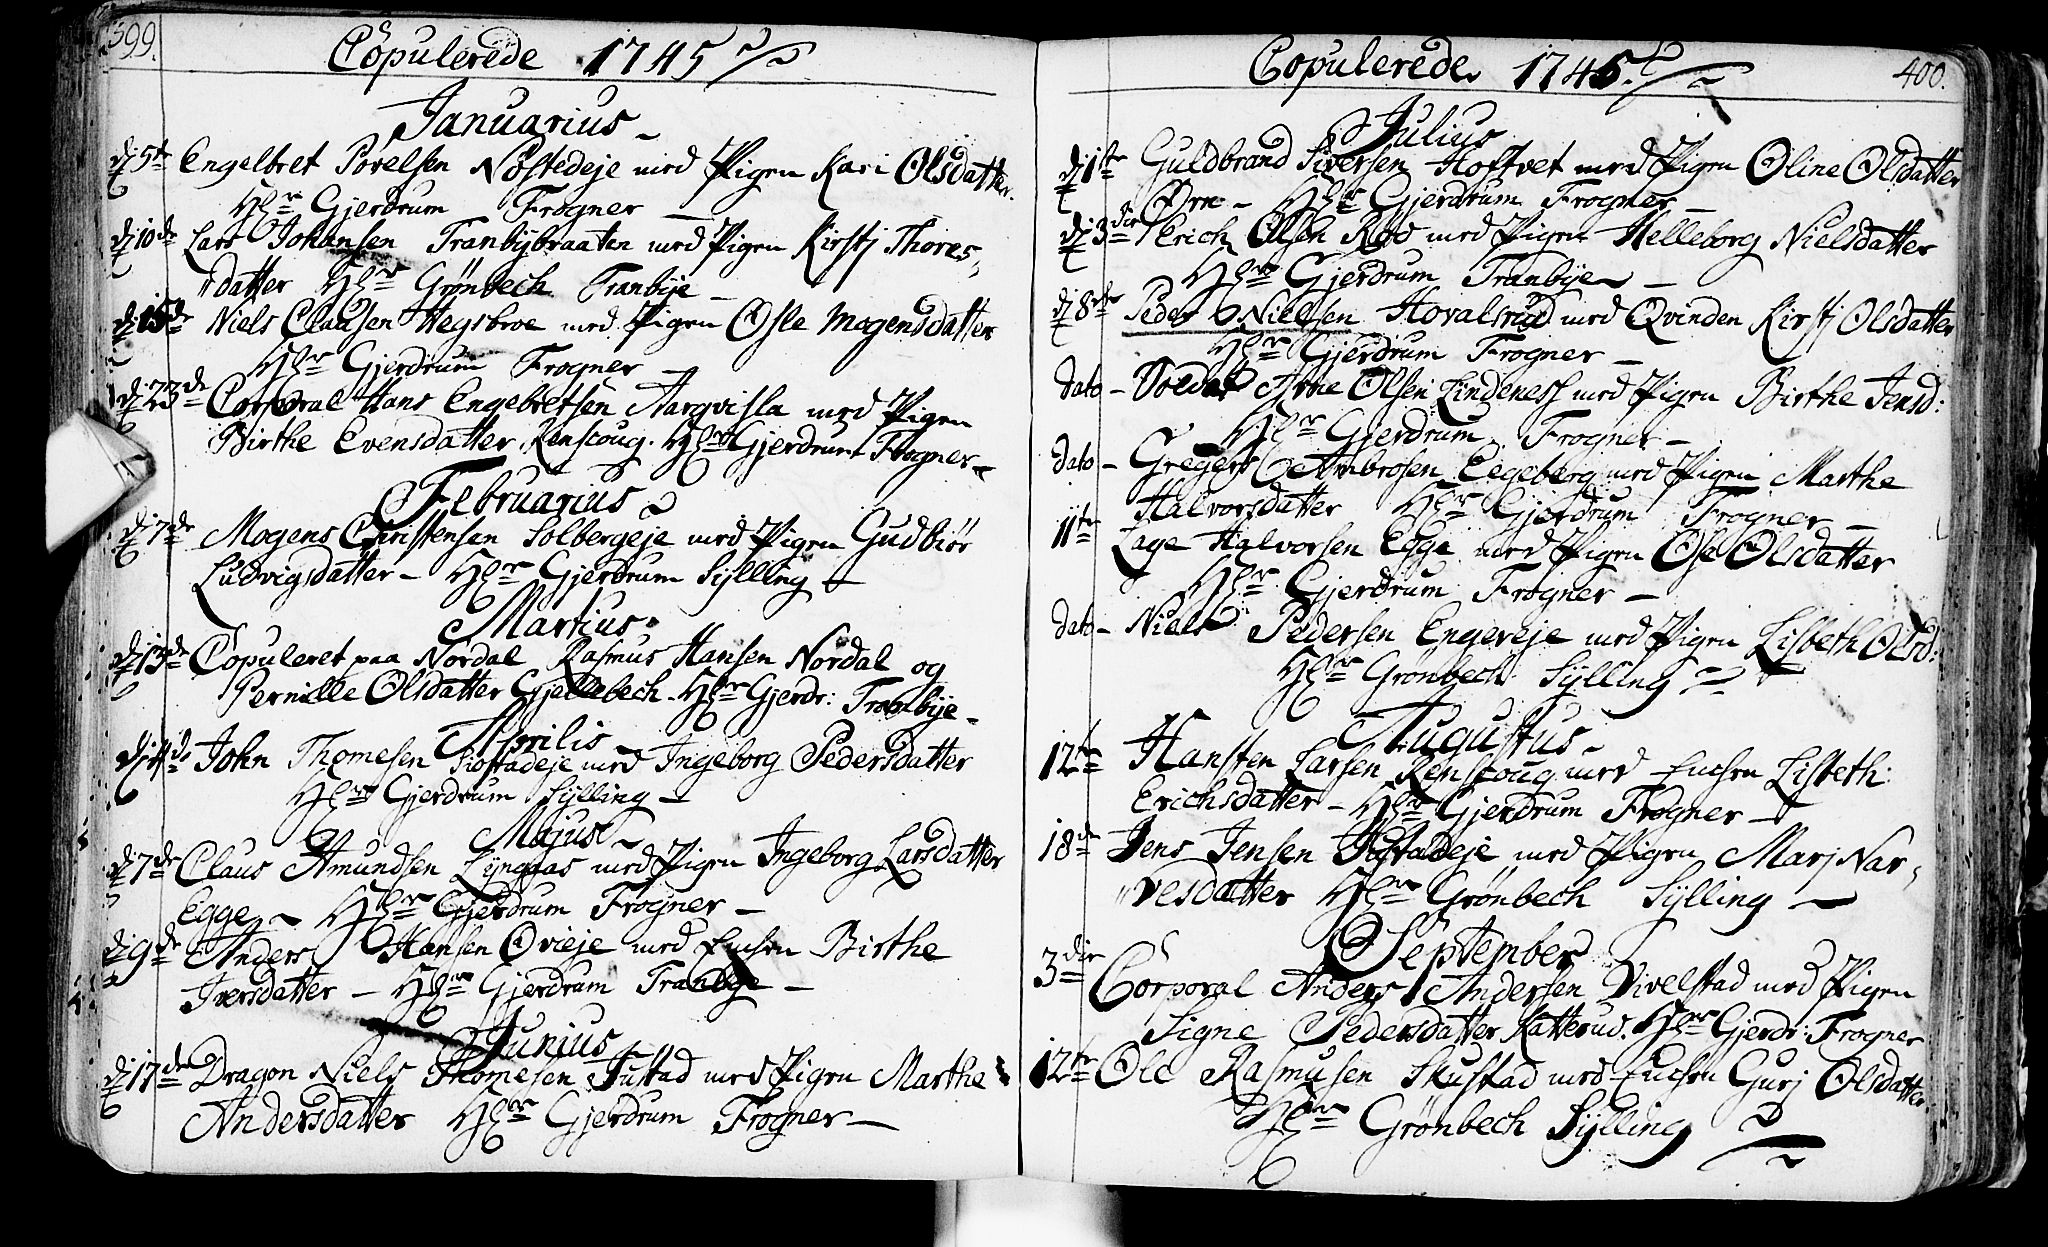 399.
Copulerede 1745
Januarius
d 5te Engelbret Povelsen Nøstedeje med Pigen Kari Olsdatter.
Hr Gjerdrum Frogner
d 10de Lars Johansen Tranbÿbraaten med Pigen Kirstj Thores-
datter Hr Grönbech Tranbÿe
d 15de Niels Clausen Hegsbroe med Pigen Osle Mogensdatter
Hr Gjerdrum Frogner
d 23de Corporal Hans Engebretsen Aarqvisla med Pigen
Birthe Evensdatter Renscoug. Hr Gjerdrum Frogner
Februarius
d 7de Mogens Christensen Solbergeje med Pigen Gudbiör
Ludvigsdatter - Hr Gjerdrum Sÿlling
Martius
d 13de Copuleret paa Nordal Rasmus Hansen Nordal og
Pernille Olsdatter Gjellebech. Hr Gjerdr: Tranbÿe
Aprilis
d 4de John Thomesen Siöstadeje med Ingeborg Pedersdatter
Hr Gjerdrum Sÿlling
Majus
d 7de Claus Amundsen Lÿngaas med Pigen Ingeborg Larsdatter
Egge - Hr Gjerdrum Frogner
d 9de Anders Hansen Ovieje med Enchen Birthe
Iversdatter - Hr Gjerdrum Tranbÿe
Junius
d 17de Dragon Niels Thomesen Justad med Pigen Marthe
Andersdatter Hr Gjerdrum Frogner
Copulerede 1745.
400.
Julius
d 1ste Guldbrand Siversen Hoftvet med Pigen Oline Olsdatter
Ørn - Hr Gjerdrum Frogner
d 3die Erich Olsen Röd med Pigen Helleborg Nielsdatter
Hr Gjerdrum Tranbÿe
d 8de Peder Nielsen Hovalsrud med Qvinden Kirstj Olsdatter
Hr Gjerdrum Frogner
dato - Soldat Arne Olsen Lindenes med Pigen Birthe Jensd:
Hr Gjerdrum Frogner
dato - Gregers Ambrosen Eegeberg med Pigen Marthe
Halvorsdatter Hr Gjerdrum Frogner
11te Lage Halvorsen Egge med Pigen Ose Olsdatter
Hr Gjerdrum Frogner
dato - Niels Pedersen Engereje med Pigen Lisbeth Olsd:
Hr Grönbech Sÿlling
Augustus
12te Hansten Larsen Renscoug med Enchen Lisbeth
Erichsdatter - Hr Gjerdrum Frogner
18de Jens Jensen med Pigen Marj Nar-
vesdatter Hr Grönbech Sÿlling
September
3die Corporal Anders Andersen Vivelstad med Pigen
Signe Pedersdatter Katterud. Hr Gjerdr: Frogner
12te Ole Rasmusen Skustad med Enchen Gurj Olsdatter
Hr Grönbech Sÿlling